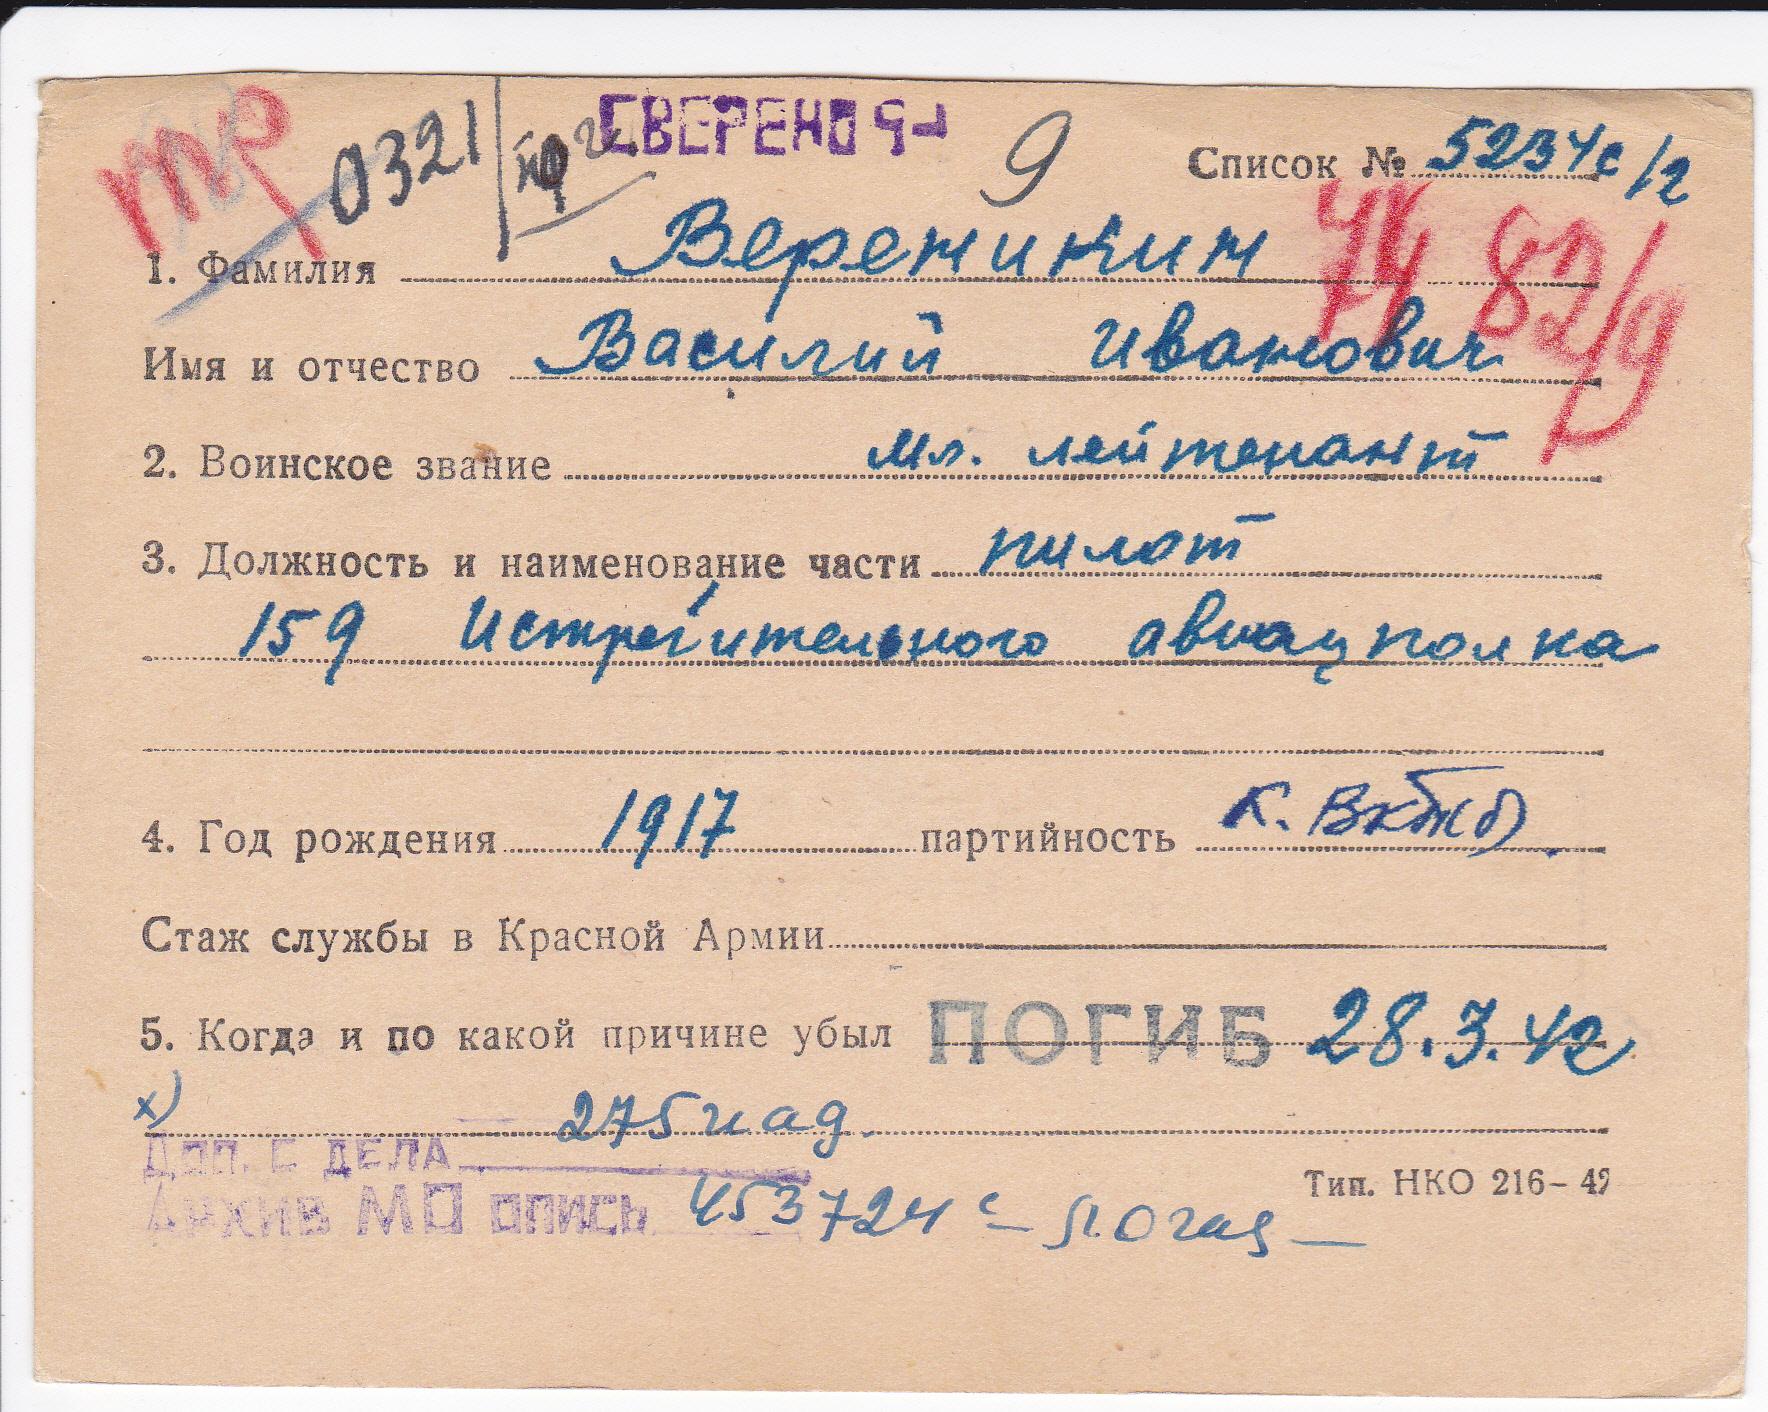 0321
СВЕРЕНО
9
Список № 5234с/2
1. Фамилия Вережикин
82/д
Имя и отчество Василий Иванович
2. Воинское звание мл. лейтенант
3. Должность и наименование части пилот
159 Истребительного авиацполка
4. Год рождения 1917 партийность к. ВКП(б).
Стаж службы в Красной Армии
5. Когда и по какой причине убыл ПОГИБ 28.3.42
х) 275 иад.
Доп. с ДЕЛА
Тип. НКО 216-42
АРХИВ МО опись 453724с —